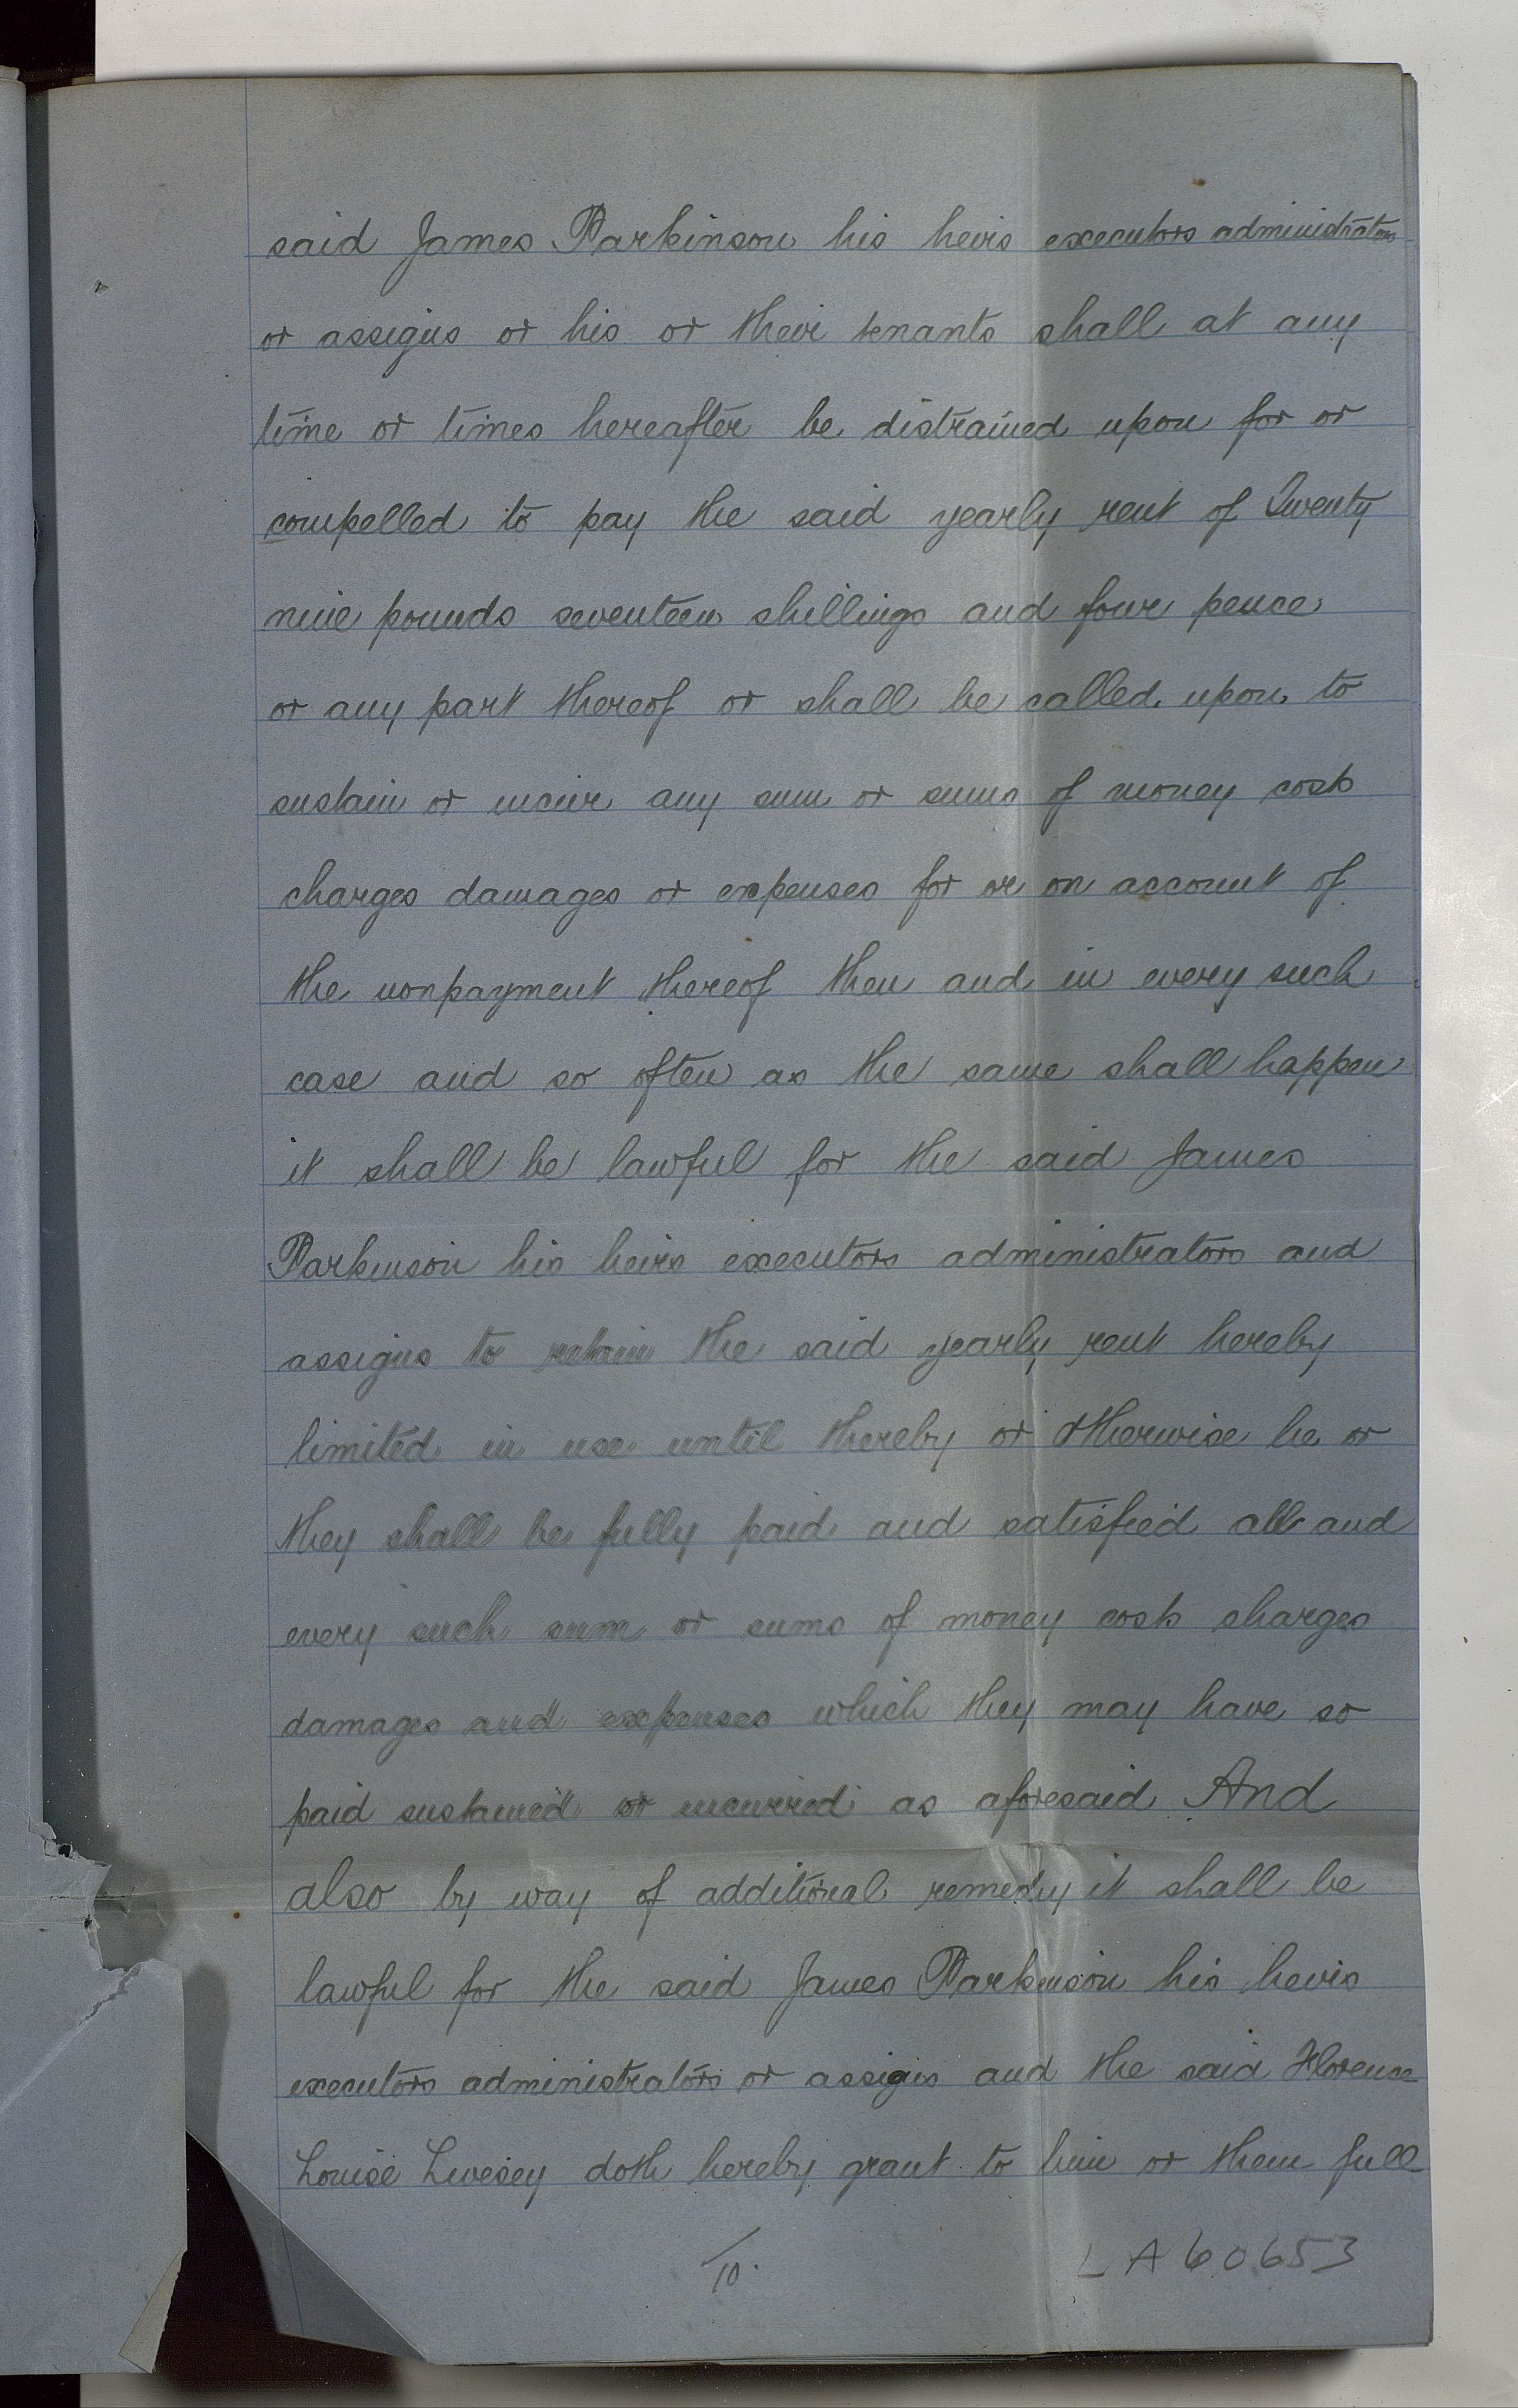 said James Parkinson his heirs executors administrators
or assigns or his or their tenants shall at any
time or times hereafter be distrained upon for or
compelled to pay the said yearly rent of Twenty
nine pounds seventeen shillings and four pence
or any part thereof or shall be called upon to
sustain or incur any sum or sums of money costs
charges damages or expenses for or on account of
the nonpayment thereof then and in every such
case and so often as the same shall happen
it shall be lawful for the said James
Parkinson his heirs executors administrators and
assigns to retain the said yearly rent hereby
limited in use until thereby or otherwise he or
they shall be fully paid and satisfied all and
every such sum or sums of money costs charges
damages and expenses which they may have so
paid sustained or incurred as aforesaid And
also by way of additional remedy it shall be
lawful for the said James Parkinson his heirs
executors administrators or assigns and the said Florence
Louise Livesey doth hereby grant to him or them full
10.
LA60653